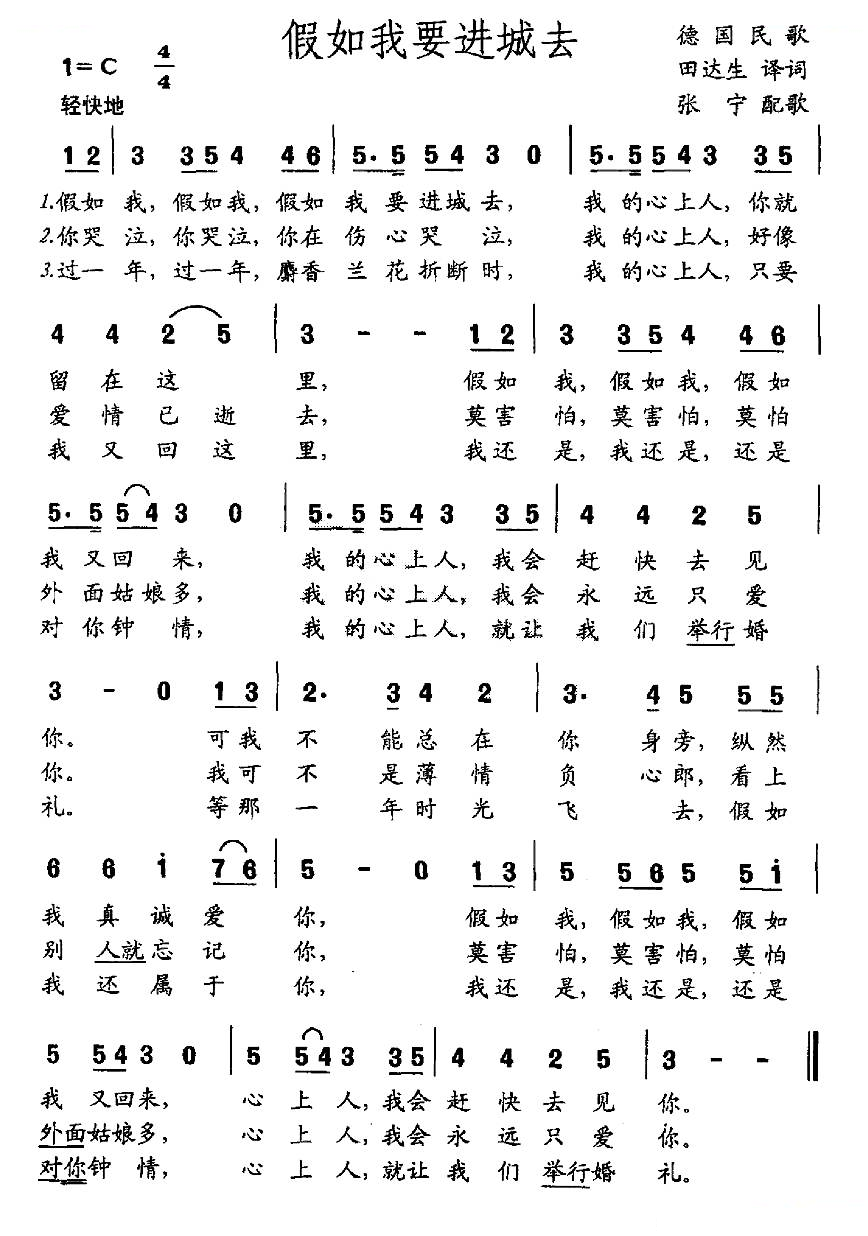 假如我要进城去
德国民歌
1=C 4/4
田达生 译词
轻快地
张宁 配歌
1 2 | 3 3 5 4 4 6 | 5· 5 5 4 3 0 | 5· 5 5 4 3 3 5 |
1.假如 我,假如我,假如 我 要进城去, 我 的心上人,你就
2.你哭 泣,你哭泣,你在 伤 心哭 泣, 我 的心上人,好像
3.过一 年,过一年,麝香 兰 花折断时, 我 的心上人,只要
4 4 2 5 | 3 - - 1 2 | 3 3 5 4 4 6 |
留 在 这 里, 假如 我,假如我,假如
爱 情 已 逝 去, 莫害 怕,莫害怕,莫怕
我 又 回 这 里, 我还 是,我还是,还是
5· 5 5 4 3 0 | 5· 5 5 4 3 3 5 | 4 4 2 5 |
我 又回 来, 我 的心上人,我会 赶 快 去 见
外 面姑娘多, 我 的心上人,我会 永 远 只 爱
对 你钟 情, 我 的心上人,就让 我 们 举行 婚
3 - 0 1 3 | 2· 3 4 2 | 3· 4 5 5 5 |
你。 可我 不 能总 在 你 身 旁,纵然
你。 我可 不 是薄 情 负 心 郎,看上
礼。 等那 一 年时 光 飞 去,假如
6 6 i 7 6 | 5 - 0 1 3 | 5 5 6 5 5 i |
我 真 诚 爱 你, 假如 我,假如我,假如
别 人就 忘 记 你, 莫害 怕,莫害怕,莫怕
我 还 属 于 你, 我还 是,我还是,还是
5 5 4 3 0 | 5 5 4 3 3 5 | 4 4 2 5 | 3 - - ‖
我 又回来, 心 上 人,我会 赶 快 去 见 你。
外面姑娘多, 心 上 人,我会 永 远 只 爱 你。
对你钟 情, 心 上 人,就让 我 们 举行婚 礼。